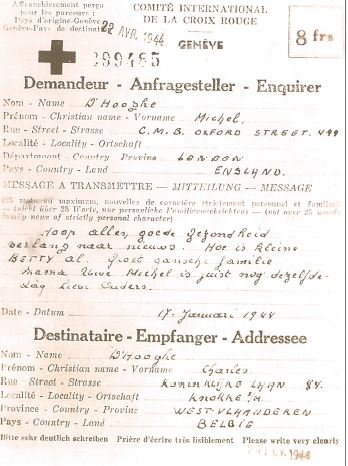 Affranchissement perçu
pour les parcours:
Pays d'origine-Genève
Genève-Pays de destinat
22 AVR. 1944
COMITÉ INTERNATIONAL
DE LA CROIX ROUGE
GENÈVE
8 frs
299485
Demandeur - Anfragesteller - Enquirer
Nom - Name D'Hooghe
Prénom - Christian name - Vorname Michel.
Rue - Street - Strasse C.M.B. OXFORD STREET. 499
Localité - Locality - Ortschaft
Départment - Country Provinz LONDON
Pays - Country - Land ENGLAND.
MESSAGE A TRANSMETTRE - MITTEILUNG - MESSAGE
(25 mots au maximum, nouvelles de caractère strictement personnel et familial)
(nicht über 25 Worte, nur persönliche Familiennachrichten) - (not over 25 words
family news of strictly personal character)
Hoop alles, goede gezondheid
verlang naar nieuws. Hoe is kleine
BETTY al. Groet gansche familie
mama Uwe Michel is juist nog dezelfde.
Dag lieve Ouders.
Date - Datum 17. Januari 1944
Destinataire - Empfanger - Addressee
Nom - Name D'Hooghe
Prénom - Christian name - Vorname Charles.
Rue Street - Strasse KONINKLIJKE LAAN 84.
Localité - Locality - Ortschaft KNOKKE
Province - Country - Provinz WEST-VLAANDEREN
Pays - Country - Land BELGIE
Bitte sehr deutlich schreiben Prière d'écrire très lisiblement Please write very clearly
1944